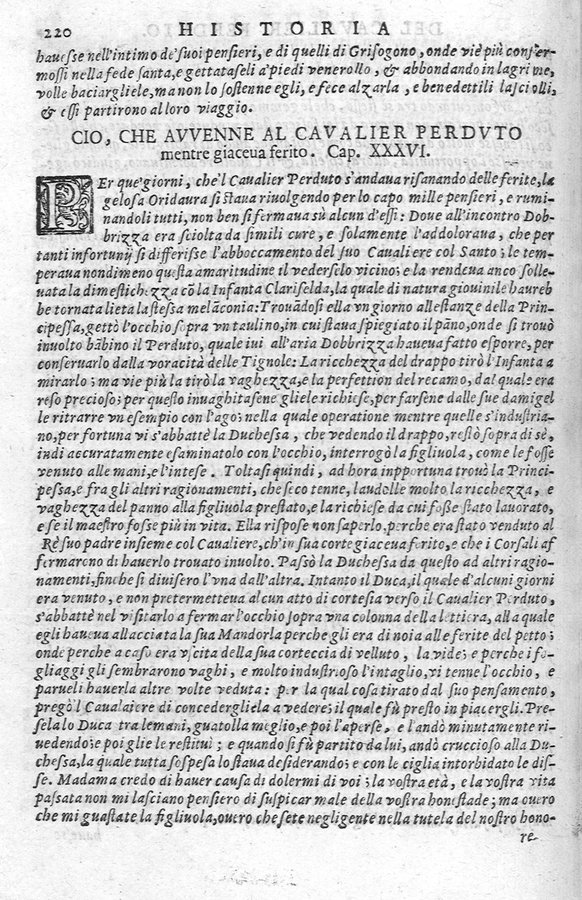 220 HISTORIA
hauesse nell'intimo de'suoi pensieri, e di quelli di Grisogono, onde viè più confer-
mossi nella fede santa, e gettataseli a'piedi venerollo, & abbondando in lagrime,
volle baciargliele, ma non lo sostenne egli, e fece alzarla, e benedettili lasciolli,
& essi partirono al loro viaggio.
CIO, CHE AVVENNE AL CAVALIER PERDVTO
mentre giaceua ferito. Cap. XXXVI.
PEr que'giorni, che'l Caualier Perduto s'andaua risanando delle ferite, la
gelosa Oridaura si staua riuolgendo per lo capo mille pensieri, e rumi-
nandoli tutti, non ben si fermaua sù alcun d'essi: Doue all'incontro Dob-
brizza era sciolta da simili cure, e solamente l'addoloraua, che per
tanti infortunij si differisse l'abboccamento del suo Caualiere col Santo; le tem-
peraua nondimeno questa amaritudine il vederselo vicino; e la rendeua anco solle-
uata la dimestichezza cō la Infanta Clariselda, la quale di natura giouinile haureb
be tornata lieta la stessa melāconia: Trouādosi ella vn giorno alle stanze della Prin-
cipessa, gettò l'occhio sopra vn taulino, in cui staua spiegato il pāno, onde si trouò
inuolto bābino il Perduto, quale iui all'aria Dobbrizza haueua fatto esporre, per
conseruarlo dalla voracità delle Tignole: La ricchezza del drappo tirò l'Infanta a
mirarlo; ma vie più la tirò la vaghezza, e la perfettion del recamo, dal quale era
reso precioso; per questo inuaghitasene gliele richiese, per farsene dalle sue damigel
le ritrarre vn esempio con l'ago; nella quale operatione mentre quelle s'industria-
no, per fortuna vi s'abbattè la Duchessa, che vedendo il drappo, restò sopra di sè,
indi accuratamente esaminatolo con l'occhio, interrogò la figliuola, come le fosse
venuto alle mani, e l'intese. Toltasi quindi, ad hora inpportuna trouò la Princi-
pessa, e fra gli altri ragionamenti, che seco tenne, laudolle molto la ricchezza, e
vaghezza del panno alla figliuola prestato, e la richiese da cui fosse stato lauorato,
e se il maestro fosse più in vita. Ella rispose non saperlo, perche era stato venduto al
Rè suo padre insieme col Caualiere, ch'in sua corte giaceua ferito, e che i Corsali af
fermarono di hauerlo trouato inuolto. Passò la Duchessa da questo ad altri ragio-
namenti, finche si diuisero l'vna dall'altra. Intanto il Duca, il quale d'alcuni giorni
era venuto, e non pretermetteua alcun atto di cortesia verso il Caualier Perduto,
s'abbattè nel visitarlo a fermar l'occhio sopra vna colonna della lettiera, alla quale
egli haueua allacciata la sua Mandorla perche gli era di noia alle ferite del petto;
onde perche a caso era vscita della sua corteccia di velluto, la vide; e perche i fo-
gliaggi gli sembrarono vaghi, e molto industrioso l'intaglio, vi tenne l'occhio, e
parueli hauerla altre volte veduta: per la qual cosa tirato dal suo pensamento,
pregò l Caualaiere di concedergliela a vedere; il quale fù presto in piacergli. Pre-
sela lo Duca tra le mani, guatolla meglio, e poi l'aperse, e l'andò minutamente ri-
uedendo; e poi glie le restituì; e quando si fù partito da lui, andò cruccioso alla Du-
chessa, la quale tutta sospesa lo staua desiderando; e con le ciglia intorbidato le dis-
se. Madama credo di hauer causa di dolermi di voi; la vostra età, e la vostra vita
passata non mi lasciano pensiero di suspicar male della vostra honestade; ma ouero
che mi guastate la figliuola, ouero che sete negligente nella tutela del nostro hono-
re